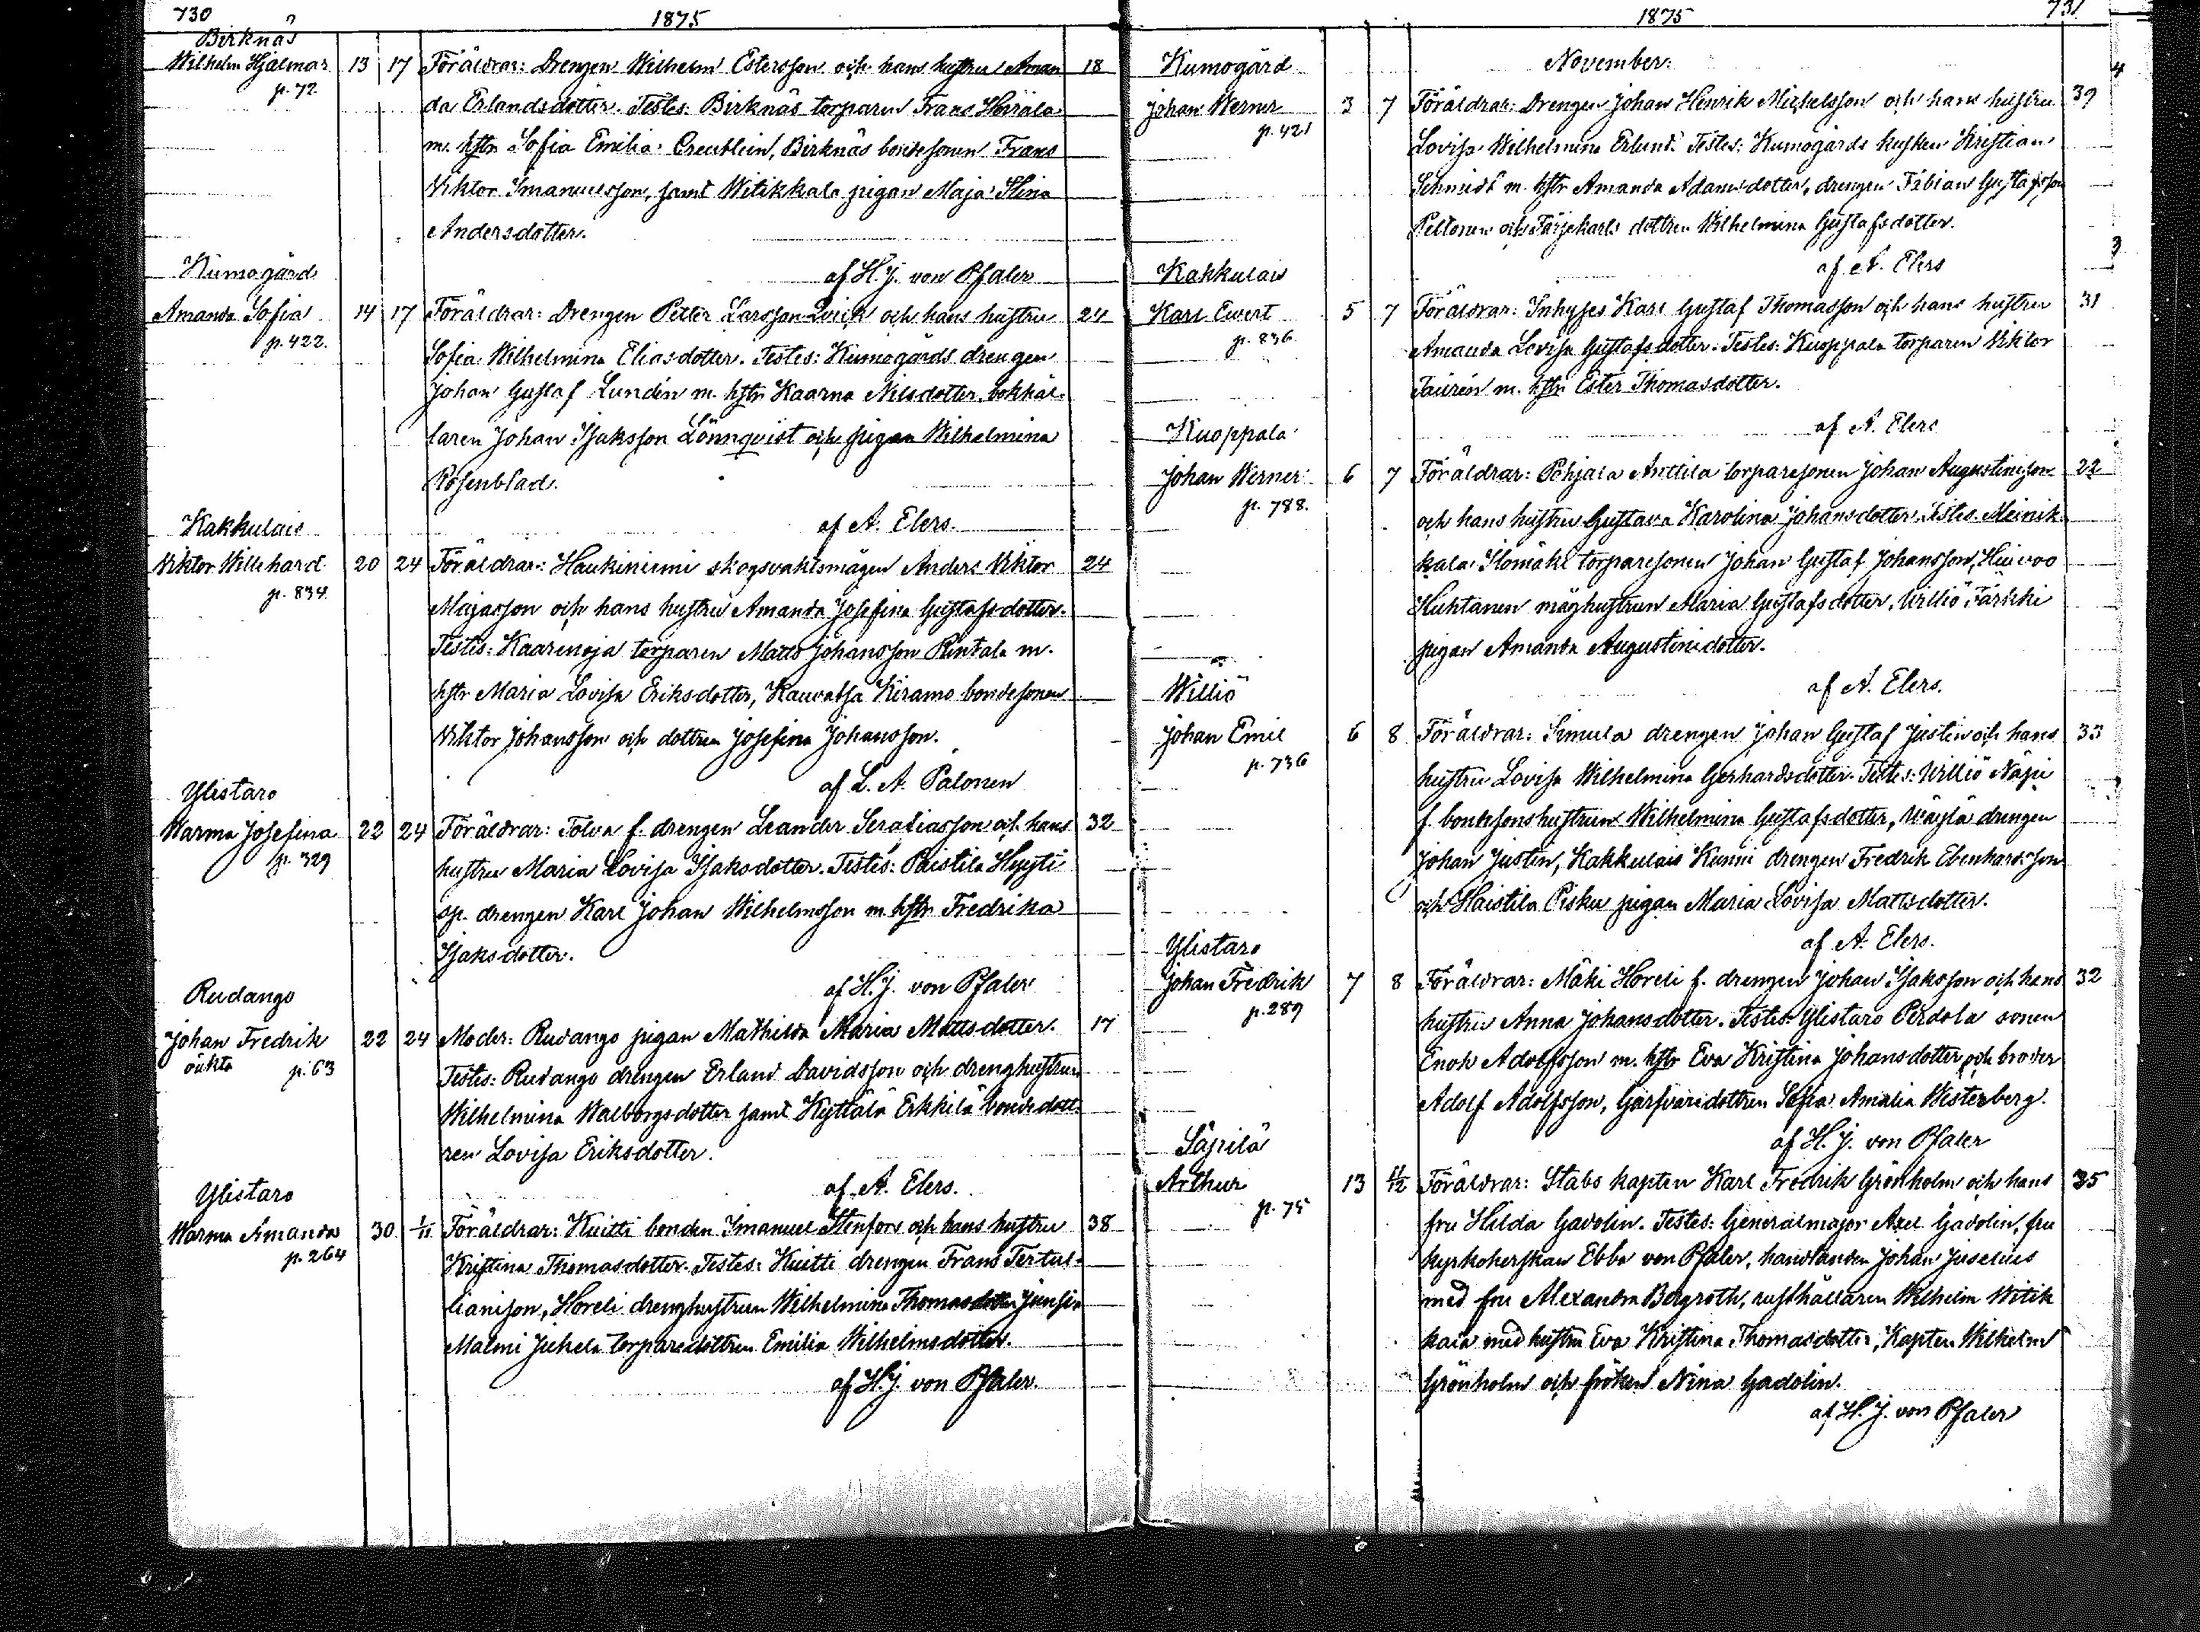 730
1875
Birknäs
Wilhelm Hjalmar 13 17 Föräldrar: Drengen Wilhelm Estersson och hans hustru Aman 18
p. 72
da Erlandsdotter. Testes: Birknäs torparen Frans
m. hstr Sofia Emilia Creutlein, Birknäs bondesonen Frans
Viktor Imanuelsson, samt Witikkala pigan Maja Stina
Andersdotter.
Kumogård
af H. J. von Pfaler
Amanda Sofia 14 17 Föräldrar: Drengen Petter Larsson och hans hustru 24
p. 422.
Sofia Wilhelmina Eliasdotter. Testes: Kumogårds drengen
Johan Gustaf Lundén m. hstr Kaarna Nilsdotter, bokhål-
laren Johan Isaksson Lönnqvist och pigan Wilhelmina
Rosenblad.
Kakkulais
af A. Elers.
Viktor Willehard 20 24 Föräldrar: Haukiniemi skogsvaktsmågen Anders Viktor 24
p. 834
Majasson och hans hustru Amanda Josefina Gustafsdotter.
Testes: Kaarenoja torparen Matts Johansson Rintala m.
hstr Maria Lovisa Eriksdotter, Kauvatsa Kiramo bondesonen
Viktor Johansson och dottren Josefina Johansson.
af L. A. Palonen
Ylistaro
Warma Josefina 22 24 Föräldrar: Tolva f. drengen Leander Serafiasson och hans 32
p. 329
hustru Maria Lovisa Isaksdotter. Testes: Paistila Hyysti
sp. drengen Karl Johan Wilhelmsson m hstr Fredrika
Isaksdotter.
af H. J. von Pfaler
Rudango
Johan Fredrik 22 24 Moder: Rudango pigan Mathilda Maria Mattsdotter. 17
oäkta p. 63
Testes: Rudango drengen Erland Davidsson och drenghustrun
Wilhelmina Walborgsdotter samt Kyttälä Erkkilä bondedott-
ren Lovisa Eriksdotter.
af A. Elers.
Ylistaro
Warma Amanda 30 1/11 Föräldrar: Huitti bonden Imanuel Stenfors och hans hustru 38
p. 264
Kristina Thomasdotter. Testes: Huitti drengen Frans Tertul-
lianison, Horeli drenghustrun Wilhelmina Thomasdotter
Malmi Juhela torparedottren Emilia Wilhelmsdotter.
af H. J. von Pfaler.
1875
731
November.
Kumogård
Johan Werner 3 7 Föräldrar: Drengen Johan Henrik Michelsson och hans hustru 39
p. 421
Lovisa Wilhelmina Erlund. Testes: Kumogårds kusken Kristian
Schmidt m. hstr Amanda Adamsdotter, drengen Fabian Gustafsson
Peltonen och Färjekarls dottren Wilhelmina Gustafsdotter.
Kakkulais
af A. Elers
Karl Evert 5 7 Föräldrar: Inhyses Karl Gustaf Thomasson och hans hustru 31
p. 836
Amanda Lovisa Gustafsdotter. Testes: Kuoppala torparen Viktor
Taurén m. hstr Ester Thomasdotter.
af A. Elers
Kuoppala
Johan Werner 6 7 Föräldrar: Pohjala Anttila torparesonen Johan Augustinsson 22
p. 788.
och hans hustru Gustava Karolina Johansdotter. Testes. Meinik-
kala Ilomäki torparesonen Johan Gustaf Johansson,
Huhtanen måghustrun Maria Gustafsdotter, Williö Färkki
pigan Amanda Augustinsdotter.
af A. Elers.
Williö
Johan Emil 6 8 Föräldrar: Simula drengen Johan Gustaf Justin och hans 33
p. 736
hustru Lovisa Wilhelmina Gerhardsdotter. Testes: Williö Näpi
f. bondesonshustrun Wilhelmina Gustafsdotter, drengen
Johan Justin, Kakkulais Kunni drengen Fredrik Ebenhardsson
och Haistila Pisku pigan Maria Lovisa Mattsdotter.
af A. Elers.
Ylistaro
Johan Fredrik 7 8 Föräldrar: Mäki Horeli f. drengen Johan Isaksson och hans 32
p. 289
hustru Anna Johansdotter. Testes: Ylistaro Perdola sonen
Enok Adolfsson m. hstr Eva Kristina Johansdotter och broder
Adolf Adolfsson, Garfvaredottren Sofia Amalia Westerberg.
af H. J. von Pfaler
Säpilä
Arthur 13 4/12 Föräldrar: Stabs kapten Karl Fredrik Grönholm och hans 35
p. 75
fru Hilda Gadolin. Testes: Generalmajor Axel Gadolin, fru
kyrkoherskan Ebba von Pfaler, handlanden Johan Juselius
med fru Alexandra Bergroth, rusthållaren Wilhelm Witik
kala med hustru Eva Kristina Thomasdotter, Kapten Wilhelm
Grönholm och fröken Nina Gadolin.
af H. J. von Pfaler